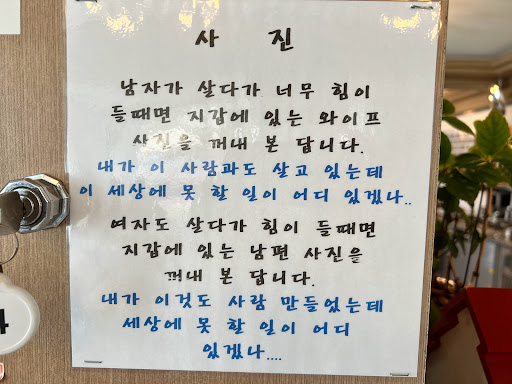 사 진
남자가 살다가 너무 힘이
들때면 지갑에 있는 와이프
사진을 꺼내 본 답니다.
내가 이 사람과도 살고 있는데
이 세상에 못 할 일이 어디 있겠나..
여자도 살다가 힘이 들때면
지갑에 있는 남편 사진을
꺼내 본 답니다.
내가 이것도 사람 만들었는데
세상에 못 할 일이 어디
있겠나....